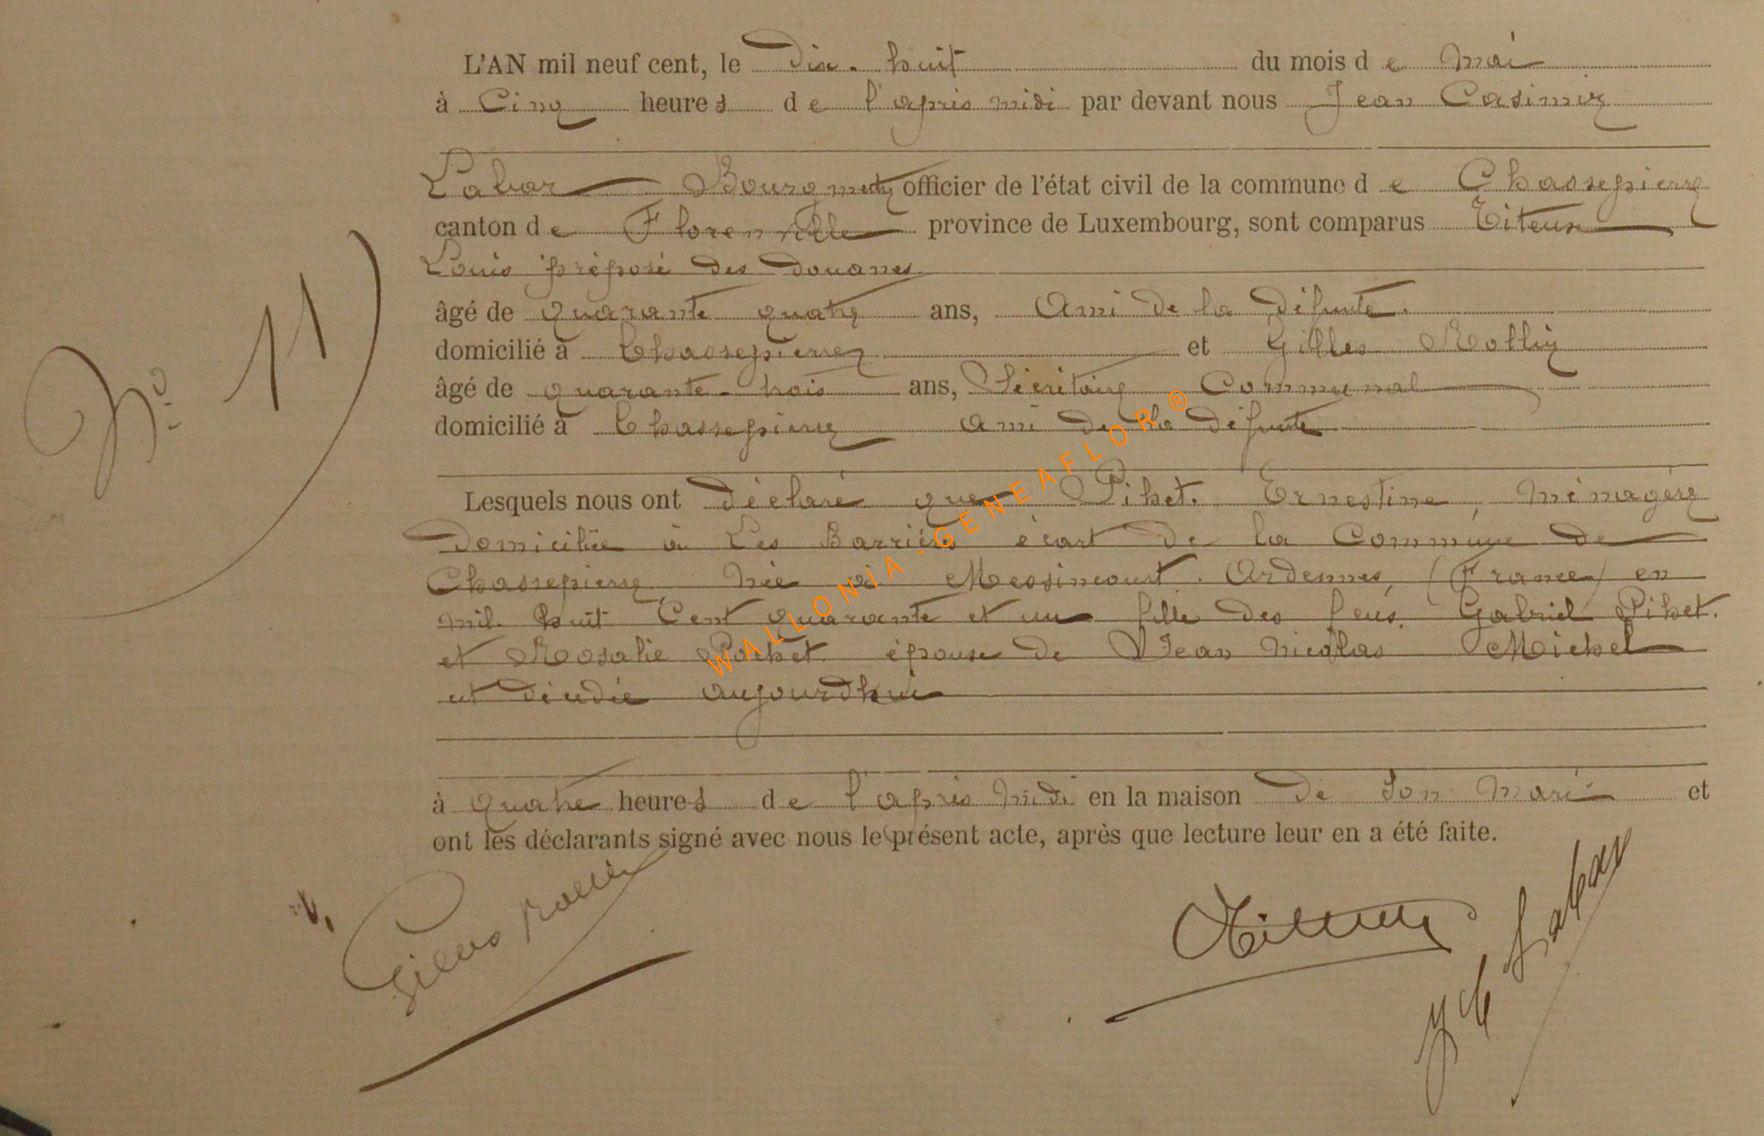 L'AN mil neuf cent, le Dix-huit du mois de Mai
à Cinq heures de l'après midi par devant nous Jean Casimir
Labar Bourgmestre officier de l'état civil de la commune de Chassepierre
canton de Florenville province de Luxembourg, sont comparus Titeux
Louis préposé des douanes
âgé de quarante quatre ans, Ami de la défunte.
domicilié à Chassepierre et Gilles Rollin
No 11
âgé de quarante-trois ans, Sécrétaire Communal
domicilié à Chassepierre ami de la défunte
Lesquels nous ont déclaré que Pihet. Ernestine, Ménagère
Domiciliée à Les Barrières écart de la Commune de
Chassepierre, née à Messincourt. Ardennes, (France) en
mil huit Cent quarante et un fille des feus. Gabriel Pihet.
et Rosalie Pochet. épouse de Jean Nicolas Michel
est décédée aujourdhui
à quatre heures de l'après Midi en la maison de Son Mari et
ont les déclarants signé avec nous le présent acte, après que lecture leur en a été faite.
Gilles Rollin
Titeux
J C Labar
WALLONIA-GENEAFLOR®